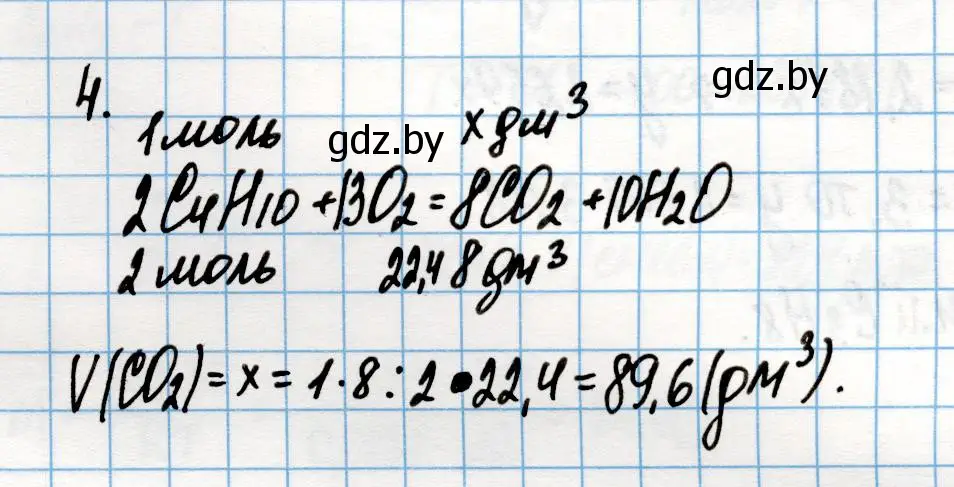 gdz.by
4.
1 моль gdz.by x дм³
2C₄H₁₀ + 13O₂ = 8CO₂ + 10H₂O
2 моль 22,4 8 дм³
V(CO₂) = x = 1 · 8 : 2 · 22,4 = 89,6 (дм³).